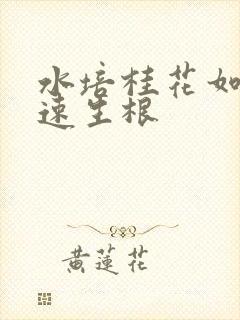 水培桂花如
速生根
黄蓮花